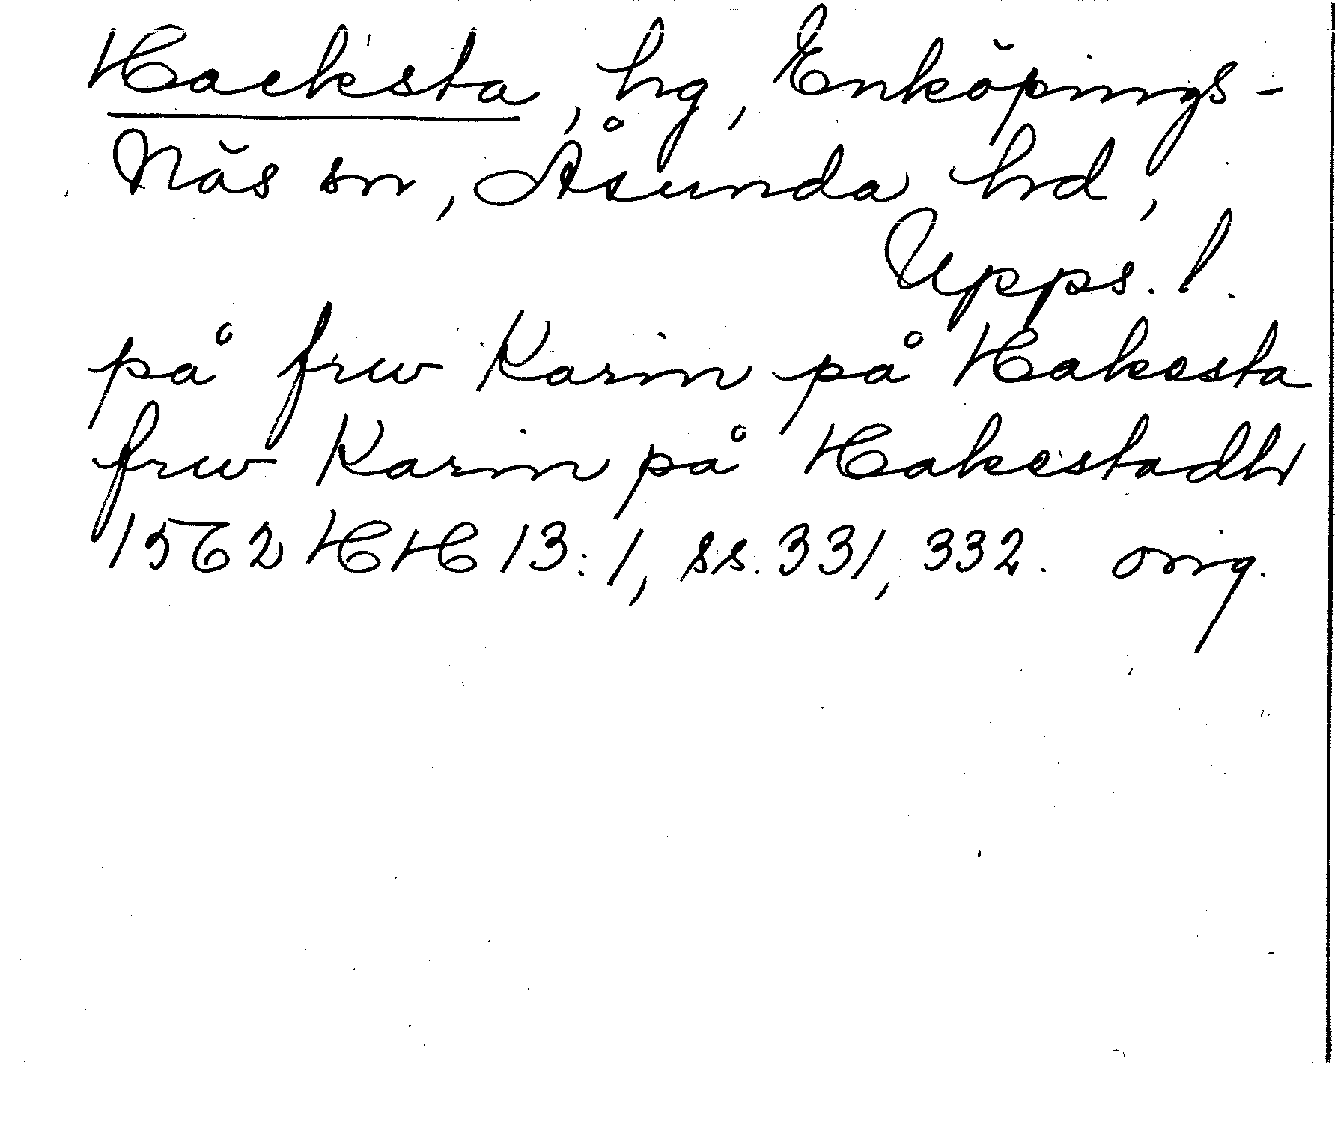 Hacksta, hg, Enköpings-
Näs sn, Åsunda hrd,
Upps. l.
på frw Karin på Hakesta
frw Karin på Hakestadh
1562 HH 13:1, ss. 331, 332. orig.